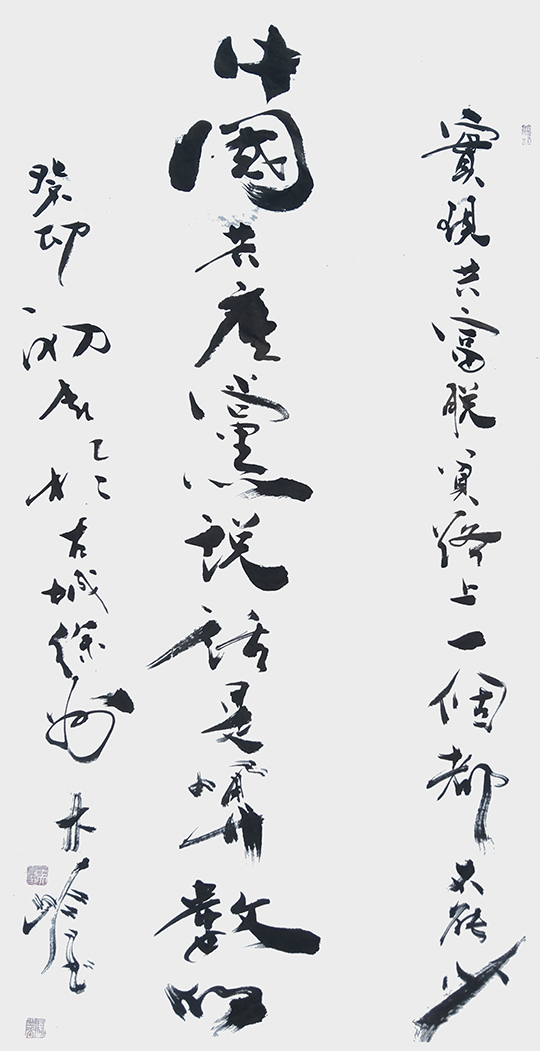 實現共富脱貧路上一個都不能少
中國共產黨説話是算數的
癸卯初春於古城徐州